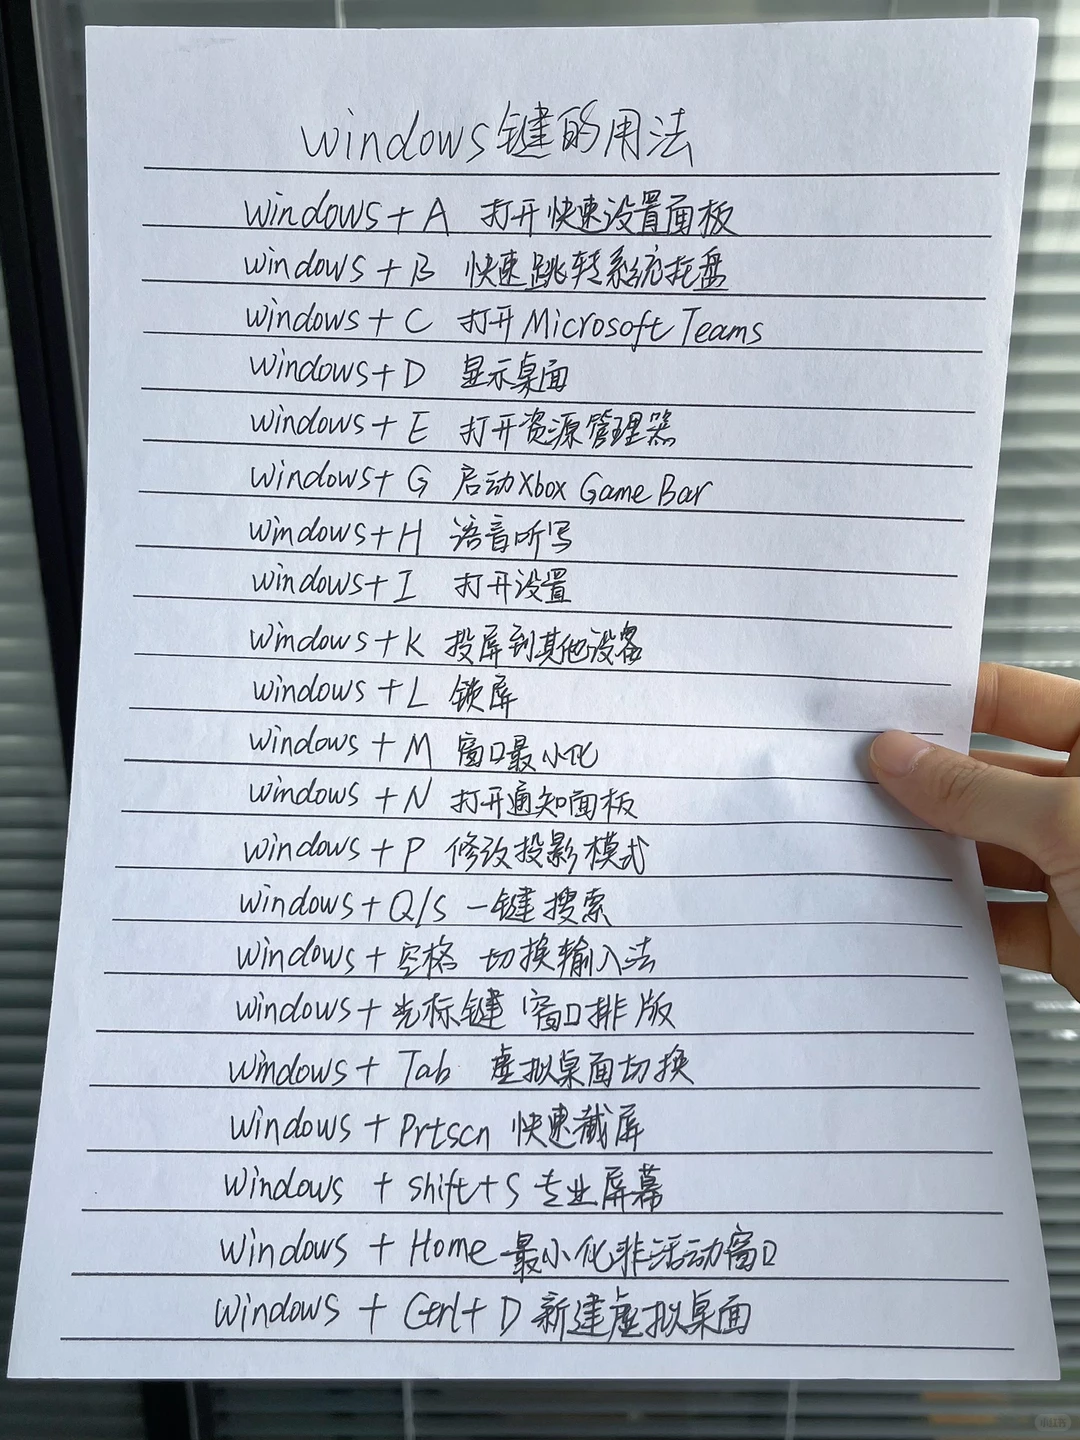 windows键的用法
windows+A 打开快速设置面板
windows+B 快速跳转系统托盘
windows+C 打开Microsoft Teams
windows+D 显示桌面
windows+E 打开资源管理器
windows+G 启动Xbox Game Bar
windows+H 语音听写
windows+I 打开设置
windows+K 投屏到其他设备
windows+L 锁屏
windows+M 窗口最小化
windows+N 打开通知面板
windows+P 修改投影模式
windows+Q/S 一键搜索
windows+空格 切换输入法
windows+光标键 窗口排版
windows+Tab 虚拟桌面切换
windows+Prtscn 快速截屏
windows+shift+S 专业屏幕
windows+Home 最小化非活动窗口
windows+Ctrl+D 新建虚拟桌面
小红书